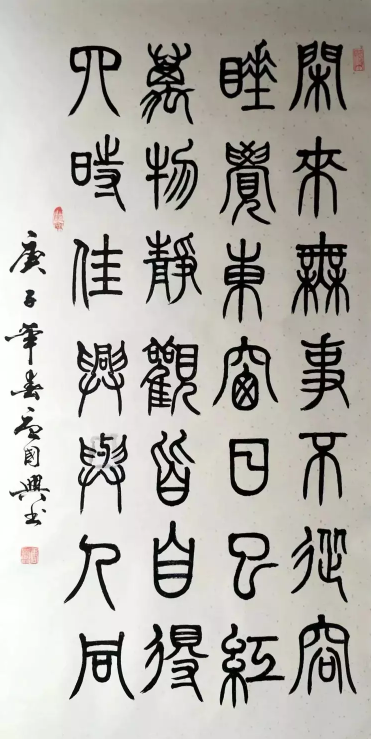 閑來無事不從容
睡覺東窗日已紅
萬物靜觀皆自得
四時佳興與人同
庚子年春国興书